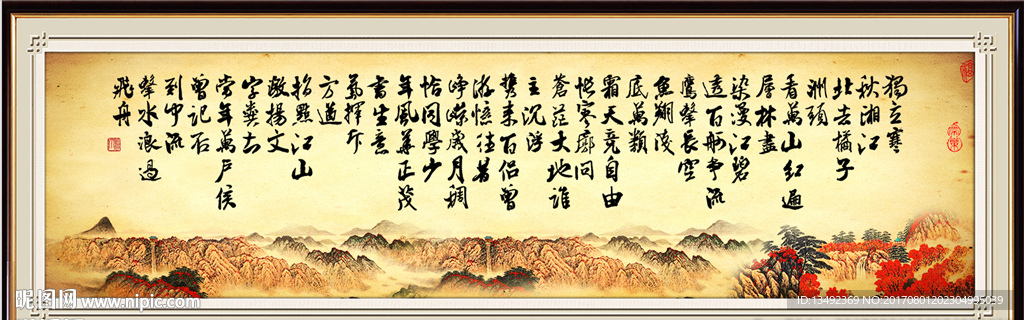 獨立寒
秋湘江
北去橘子
洲頭
看萬山红遍
層林盡
染漫江碧
透百舸争流
鷹擊長空
魚翔淺
底萬類
霜天竞自由
悵寥廓問
蒼茫大地誰
主沉浮
携来百侣曾
游憶往昔
峥嵘歲月稠
恰同學少
年風華正茂
書生意
氣揮斥
方遒
指點江山
激揚文
字糞土
當年萬户侯
曾記否
到中流
擊水浪遏
飛舟
昵图网 www.nipic.com
ID:13492369 NO:20170801202304995039